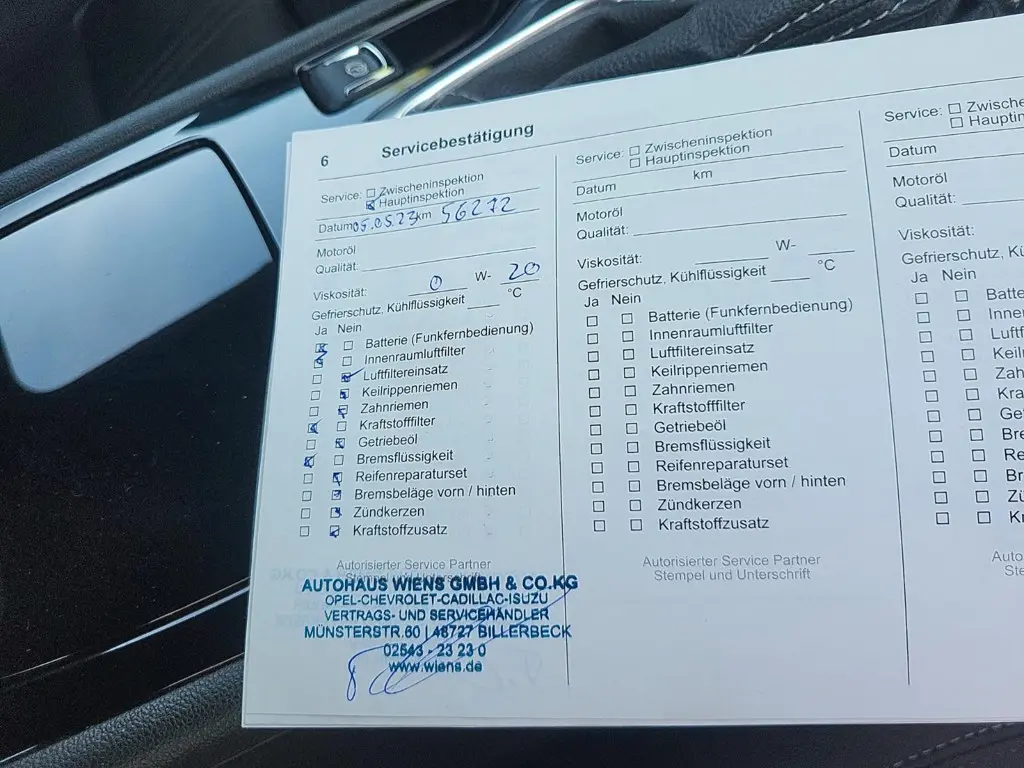 6 Servicebestätigung
Service: Zwischeninspektion
Hauptinspektion
Datum 05.05.23 km 56272
Motoröl
Qualität:
Viskosität: 0 W- 20
Gefrierschutz, Kühlflüssigkeit °C
Ja Nein
Batterie (Funkfernbedienung)
Innenraumluftfilter
Luftfiltereinsatz
Keilrippenriemen
Zahnriemen
Kraftstofffilter
Getriebeöl
Bremsflüssigkeit
Reifenreparaturset
Bremsbeläge vorn / hinten
Zündkerzen
Kraftstoffzusatz
Autorisierter Service Partner
Stempel und Unterschrift
AUTOHAUS WIENS GMBH & CO.KG
OPEL-CHEVROLET-CADILLAC-ISUZU
VERTRAGS- UND SERVICEHÄNDLER
MÜNSTERSTR.60 | 48727 BILLERBECK
02543 - 23 23 0
www.wiens.de
Service: Zwischeninspektion
Hauptinspektion
Datum km
Motoröl
Qualität:
Viskosität: W-
Gefrierschutz, Kühlflüssigkeit °C
Ja Nein
Batterie (Funkfernbedienung)
Innenraumluftfilter
Luftfiltereinsatz
Keilrippenriemen
Zahnriemen
Kraftstofffilter
Getriebeöl
Bremsflüssigkeit
Reifenreparaturset
Bremsbeläge vorn / hinten
Zündkerzen
Kraftstoffzusatz
Autorisierter Service Partner
Stempel und Unterschrift
Service: Zwische
Hauptin
Datum
Motoröl
Qualität:
Viskosität:
Gefrierschutz, Kü
Ja Nein
Batte
Inne
Luftf
Keil
Zah
Kra
Ge
Bre
Re
Br
Zü
Kr
Auto
Ste